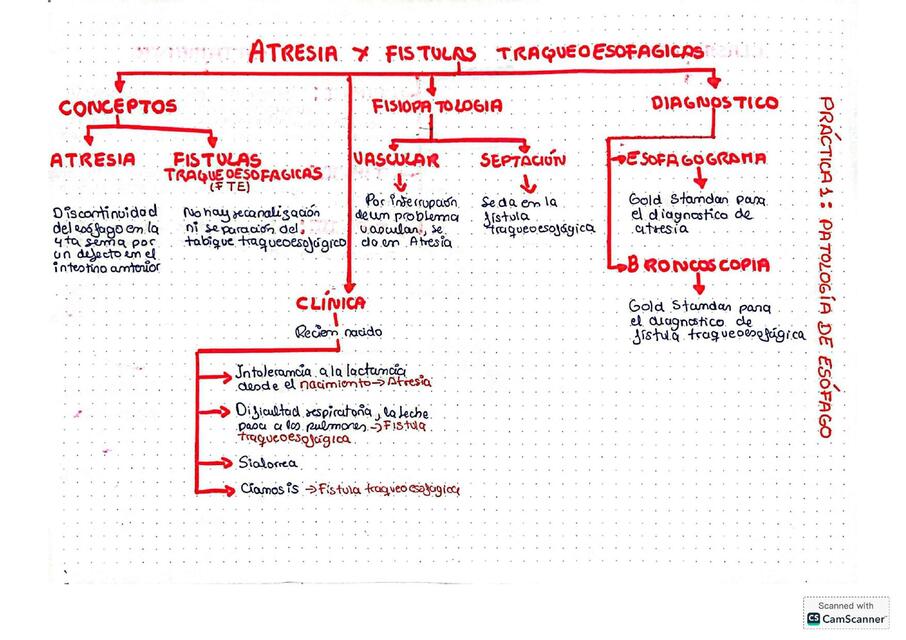 ATRESIA Y FISTULAS TRAQUEOESOFAGICAS
CONCEPTOS
ATRESIA
Discontinuidad
del esófago en la
4ta semna por
un defecto en el
intestino anterior
FISTULAS
TRAQUEOESOFAGICAS
(FTE)
No hay recanalización
ni separación del
tabique traqueoesofágico
FISIOPATOLOGIA
VASCULAR
Por interrupción
de un problema
vascular, se
da en Atresia
SEPTACIÓN
Se da en la
fístula
traqueoesofágica
DIAGNOSTICO
ESOFAGOGRAMA
Gold Standan para
el diagnostico de
atresia
BRONCOSCOPIA
Gold Standan para
el diagnostico de
fístula traqueoesofágica
CLÍNICA
Recien nacido
Intolerancia a la lactancia
desde el nacimiento → Atresia
Dificultad respiratoria, la leche
pasa a los pulmones → Fistula
traqueoesofágica
Sialorrea
Cianosis → Fistula traqueoesofágica
PRÁCTICA 1: PATOLOGÍA DE ESÓFAGO
Scanned with
CS CamScanner